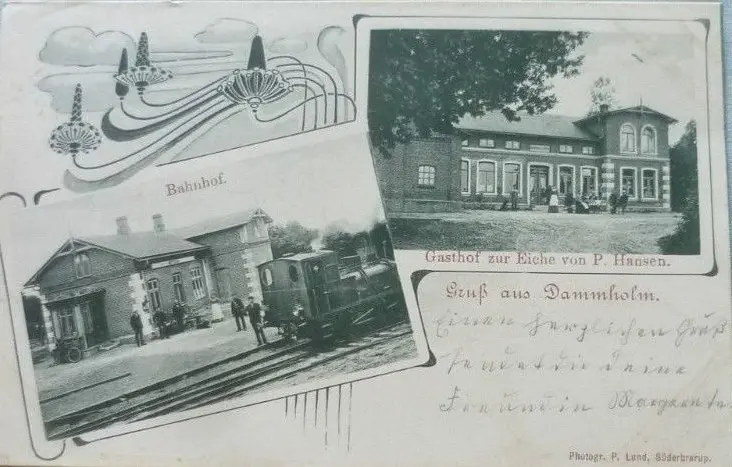 Bahnhof.
Gasthof zur Eiche von P. Hansen.
Gruß aus Dammholm.
Einen herzlichen Gruß
sendet dir deine
Freundin Margareta
Photogr. P. Lund, Süderbrarup.